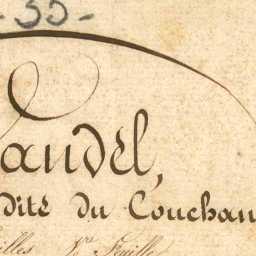 - 55 -
andel,
dite du Couchan
illes Vve Feuille